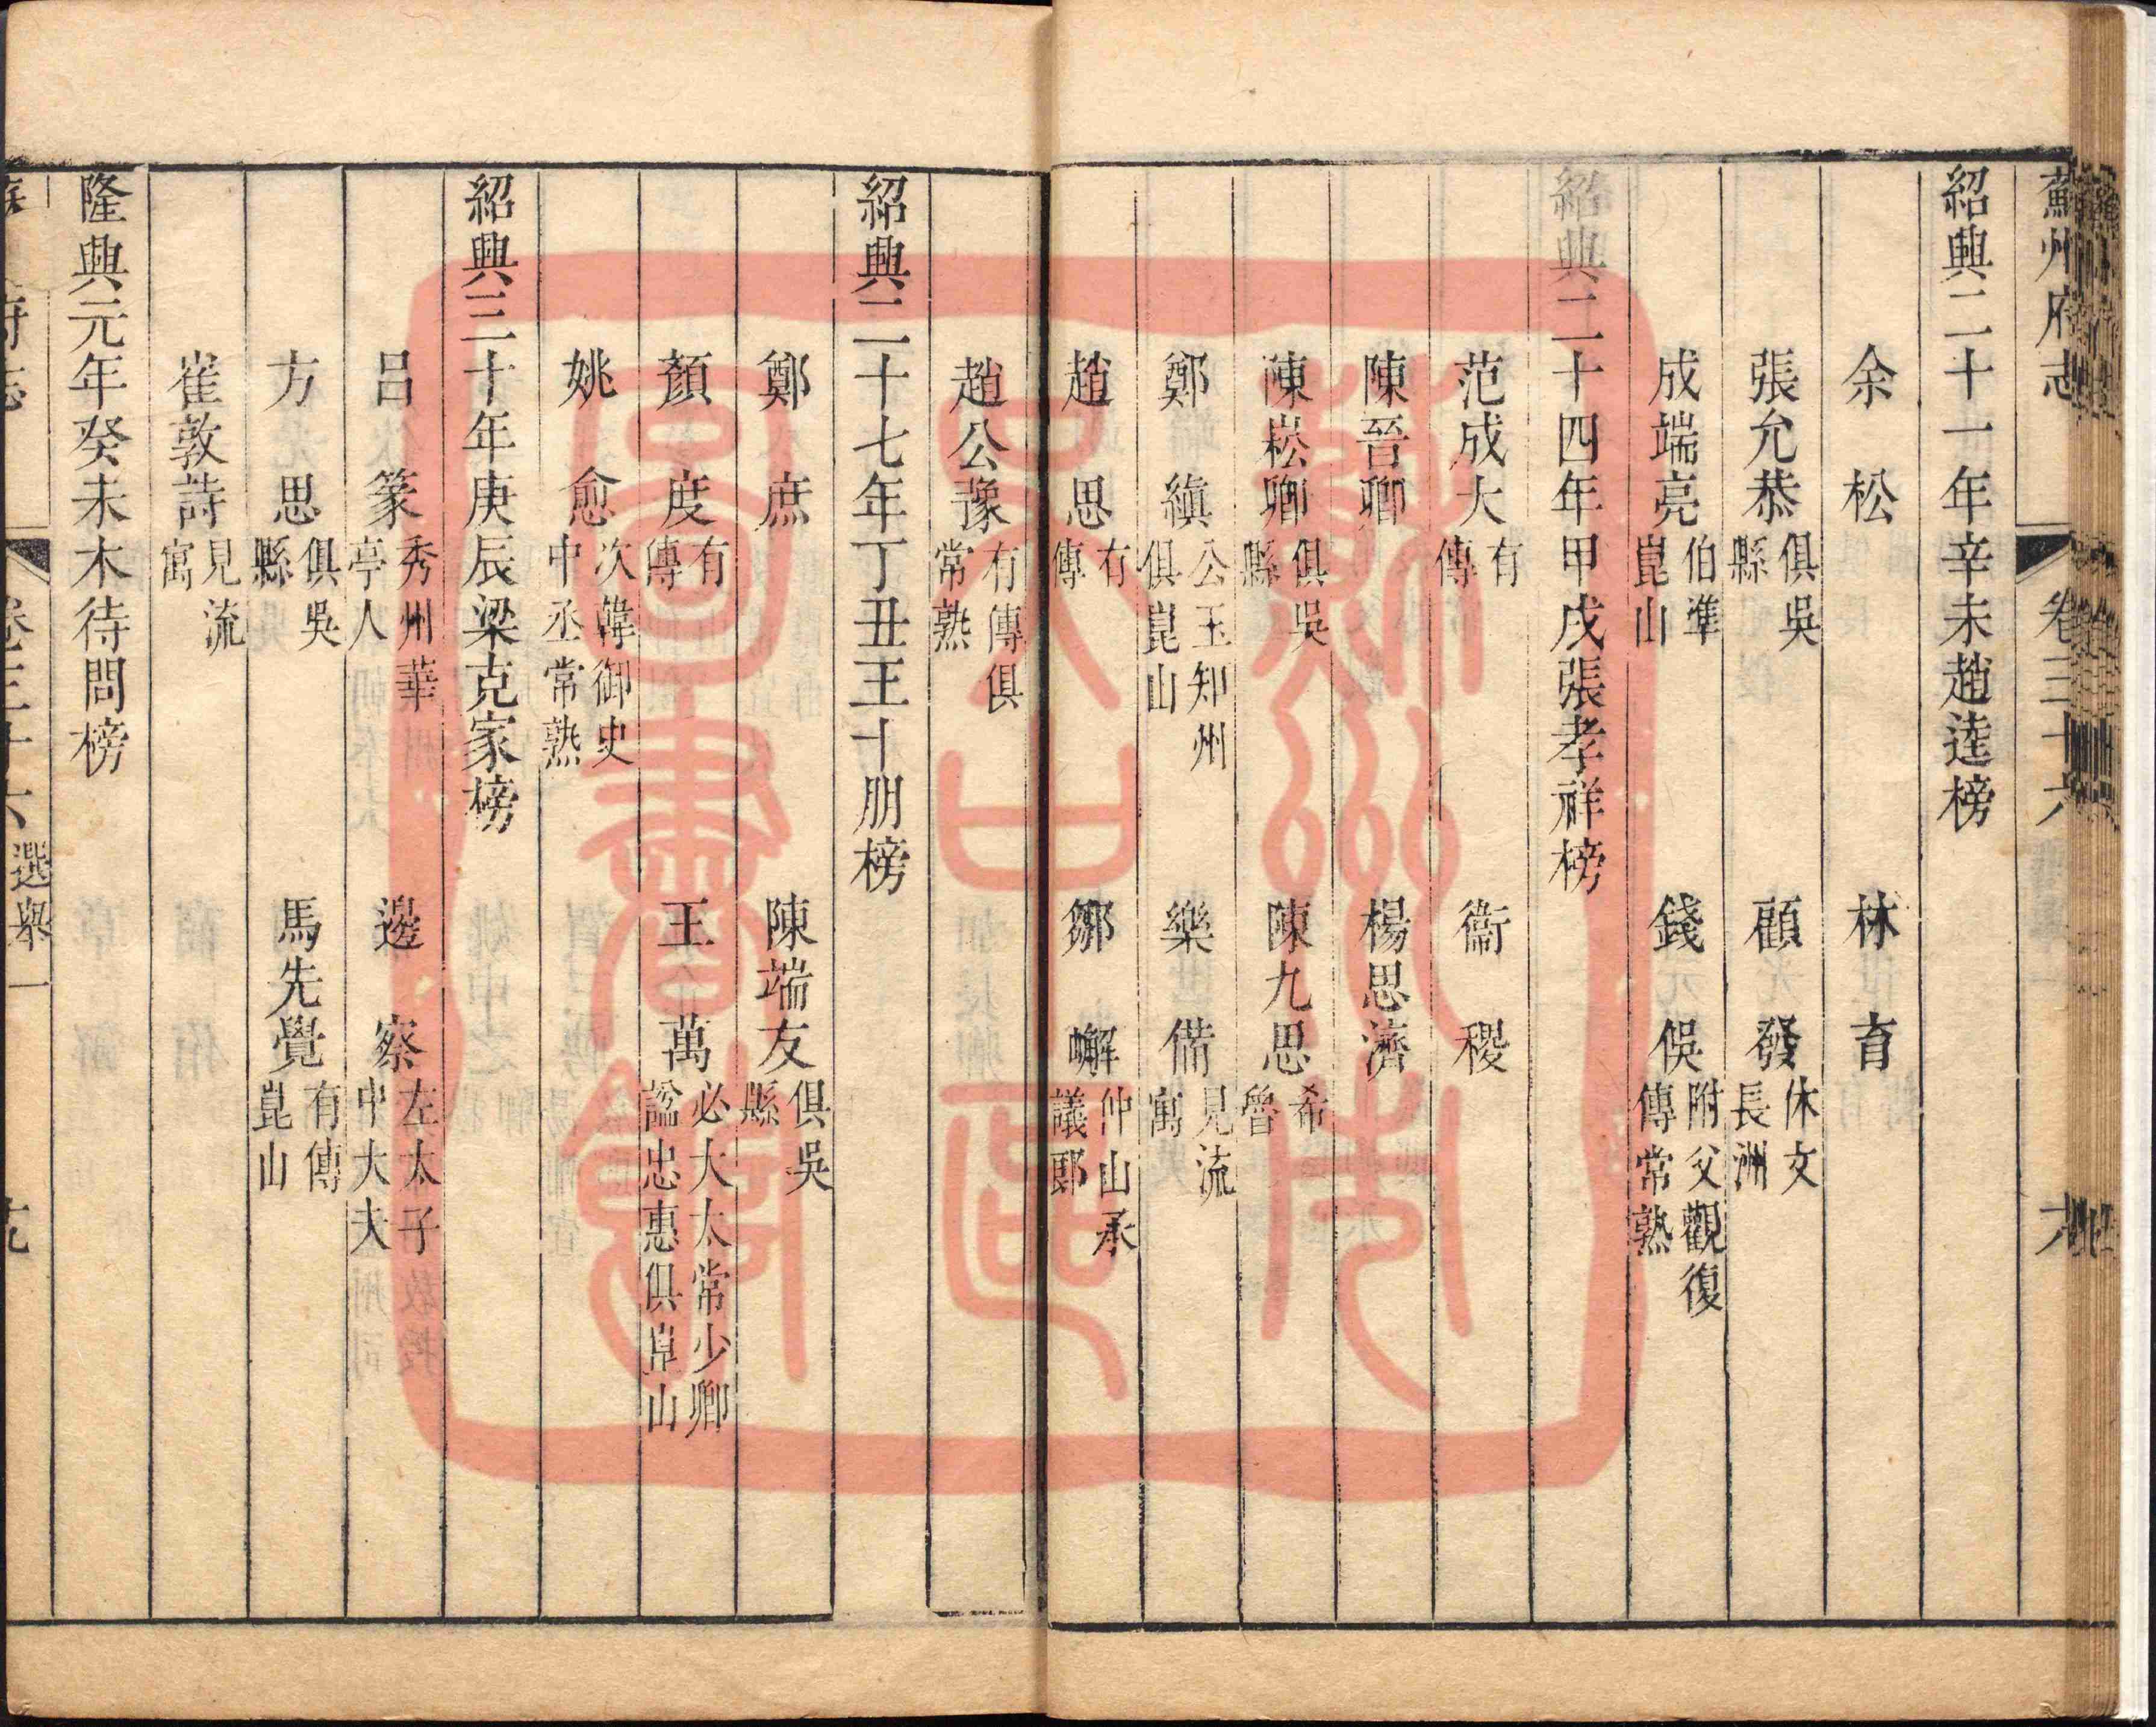 蘇州府志 卷三十六
紹興二十一年辛未趙逵榜
余松 林育
張允恭 俱吳縣 顧發 休文長洲
成端亮 伯準崑山 錢俁 附父觀復傳常熟
紹興二十四年甲戌張孝祥榜
范成大 有傳 衞稷
陳晉卿 楊思濟
陳崧卿 俱吳縣 陳九思 希魯
鄭縝 公玉知州俱崑山 樂備 見流寓
趙思 有傳 鄒嶰 仲山承議郎
趙公豫 有傳俱常熟
紹興二十七年丁丑王十朋榜
鄭庶 陳端友 俱吳縣
顏度 有傳 王萬 必大太常少卿諡忠惠俱崑山
姚愈 次韓御史中丞常熟
紹興三十年庚辰梁克家榜
呂篆 秀州華亭人 邊察 左太子中大夫
方思 俱吳縣 馬先覺 有傳崑山
崔敦詩 見流寓
隆興元年癸未木待問榜
府志 卷三十六 選舉一